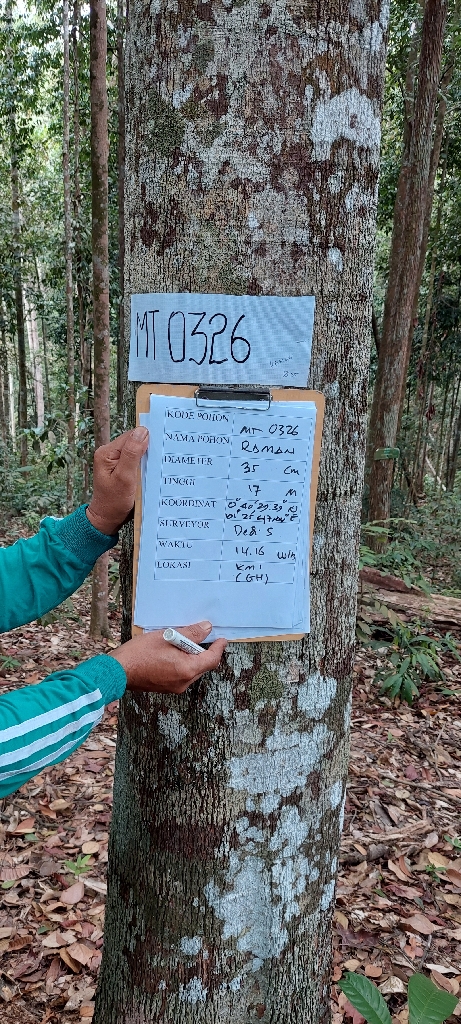 MT 0326
KODE POHON MT 0326
NAMA POHON
DIAMETER 35 Cm
TINGGI 17 M
KOORDINAT
SURVEYOR Dedi S
WAKTU 14.16 WIB
LOKASI KM 1
(GH)